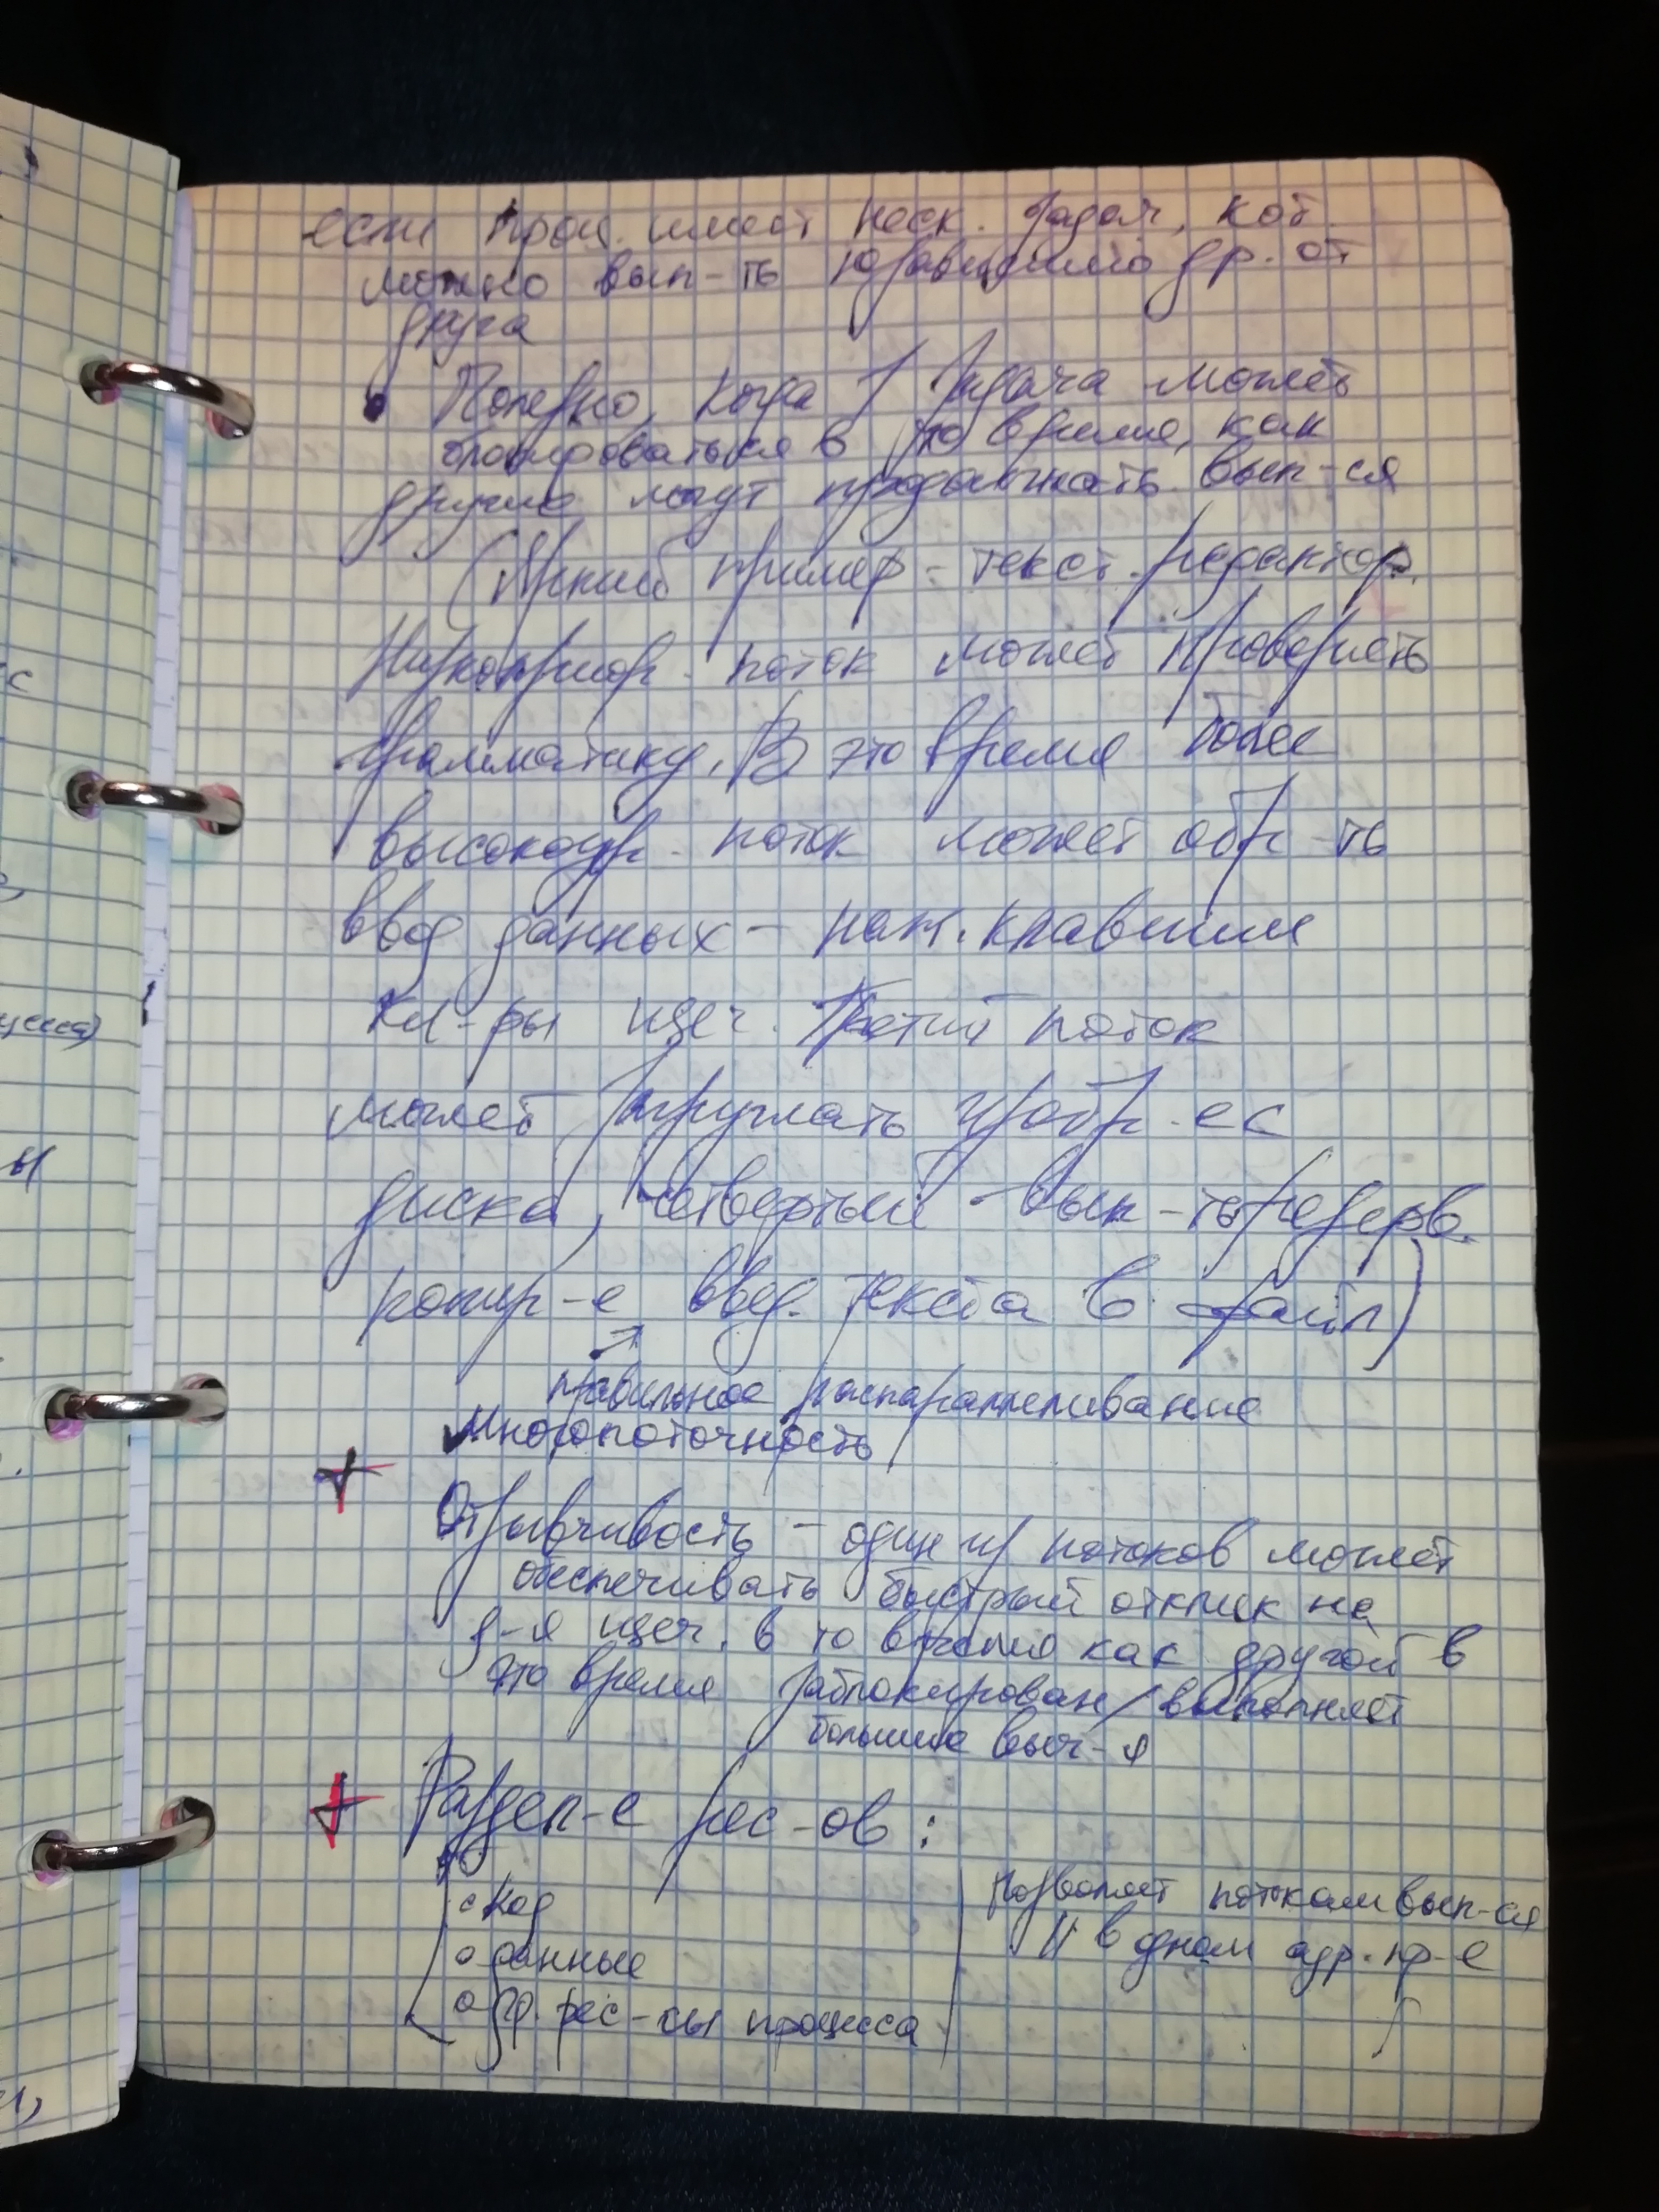 если проц. имеет неск. задач, кот.
можно вып-ть независимо др. от
друга
• Полезно, когда 1 задача может
блокироваться в то время, как
другие могут продолжать вып-ся
(Яркий пример - текст. редактор.
Низкоприор. поток может проверять
грамматику. В это время более
высокоур. поток может обр-ть
ввод данных - наж. клавиши
кл-ры щеч. Третий поток
может загружать изобр-е с
диска, четвертый - вып-ть резерв.
копир-е введ. текста в файл)
правильное распараллеливание
Многопоточность
+ Отзывчивость - один из потоков может
обеспечивать быстрый отклик на
д-я щеч. в то время как другой в
это время заблокирован/выполняет
большие выч-я
+ Раздел-е рес-ов:
код
данные
др. рес-сы процесса
позволяет потокам вып-ся
|| в одном адр. пр-е